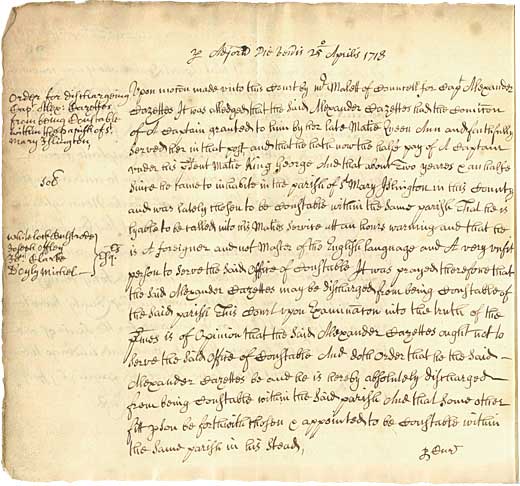 p Adjorn Die Veneris 25° Aprilis 1718
Order for discharging
Cap: Alex: Cazettes
from being Constable
within the parish of St
Mary Islington
Upon motion made unto this Court by Mr Malett of Councell for Cap: Alexander
Cazettes It was alledged that the said Alexander Cazettes had the Comicon
of A Captain granted to him by her late Matie Queen Ann and faithfully
served her in that post and that he hath now the half pay of A Captain
under his psent Matie King George And that about Two yeares & an halfe
since he came to inhabite in the parish of St Mary Islington in this County
and was lately chosen to be Constable within the same parish That he is
lyable to be called into his Maties Service att an hours warning and that he
is A foreigner and not Master of the English language and A very unfitt
person to serve the said Office of Constable It was prayed therefore that
the said Alexander Cazettes may be discharged from being Constable of
the said parish This Court upon Examinacon into the truth of the
pmises is of Opinion that the said Alexander Cazettes ought not to
serve the said Office of Constable And doth Order that he the said
Alexander Cazettes be and he is hereby absolutely discharged
from being Constable within the said parish And that some other
fitt pson be forthwith chosen & appointed to be Constable within
the same parish in his stead,
p Cur
Whitelock Bulstrode
Joseph Offley
Clarke
Doyly Michel
Esqs